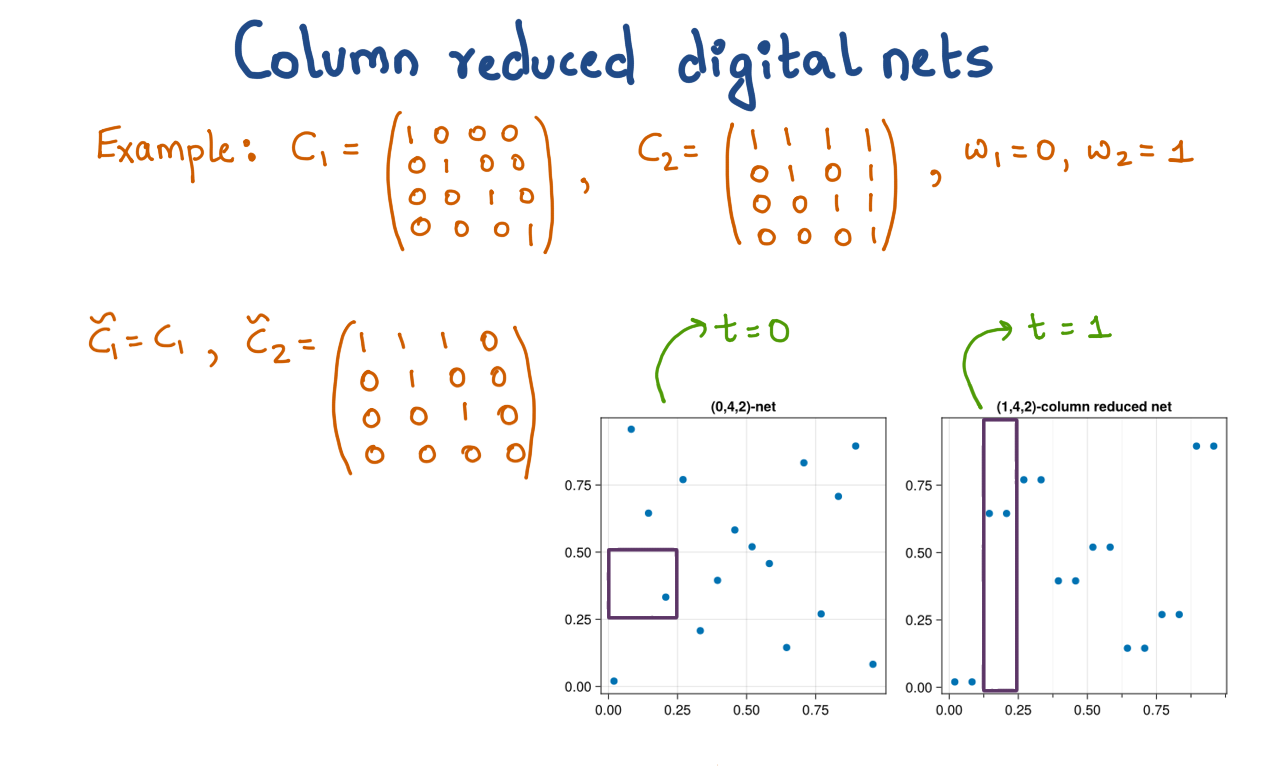 Column reduced digital nets
Example: C₁ = (1 0 0 0
0 1 0 0
0 0 1 0
0 0 0 1), C₂ = (1 1 1 1
0 1 0 1
0 0 1 1
0 0 0 1), ω₁=0, ω₂=1
C̃₁ = C₁, C̃₂ = (1 1 1 0
0 1 0 0
0 0 1 0
0 0 0 0)
t=0
t = 1
(0,4,2)-net
0.75
0.50
0.25
0.00
0.00 0.25 0.50 0.75
(1,4,2)-column reduced net
0.75
0.50
0.25
0.00
0.00 0.25 0.50 0.75